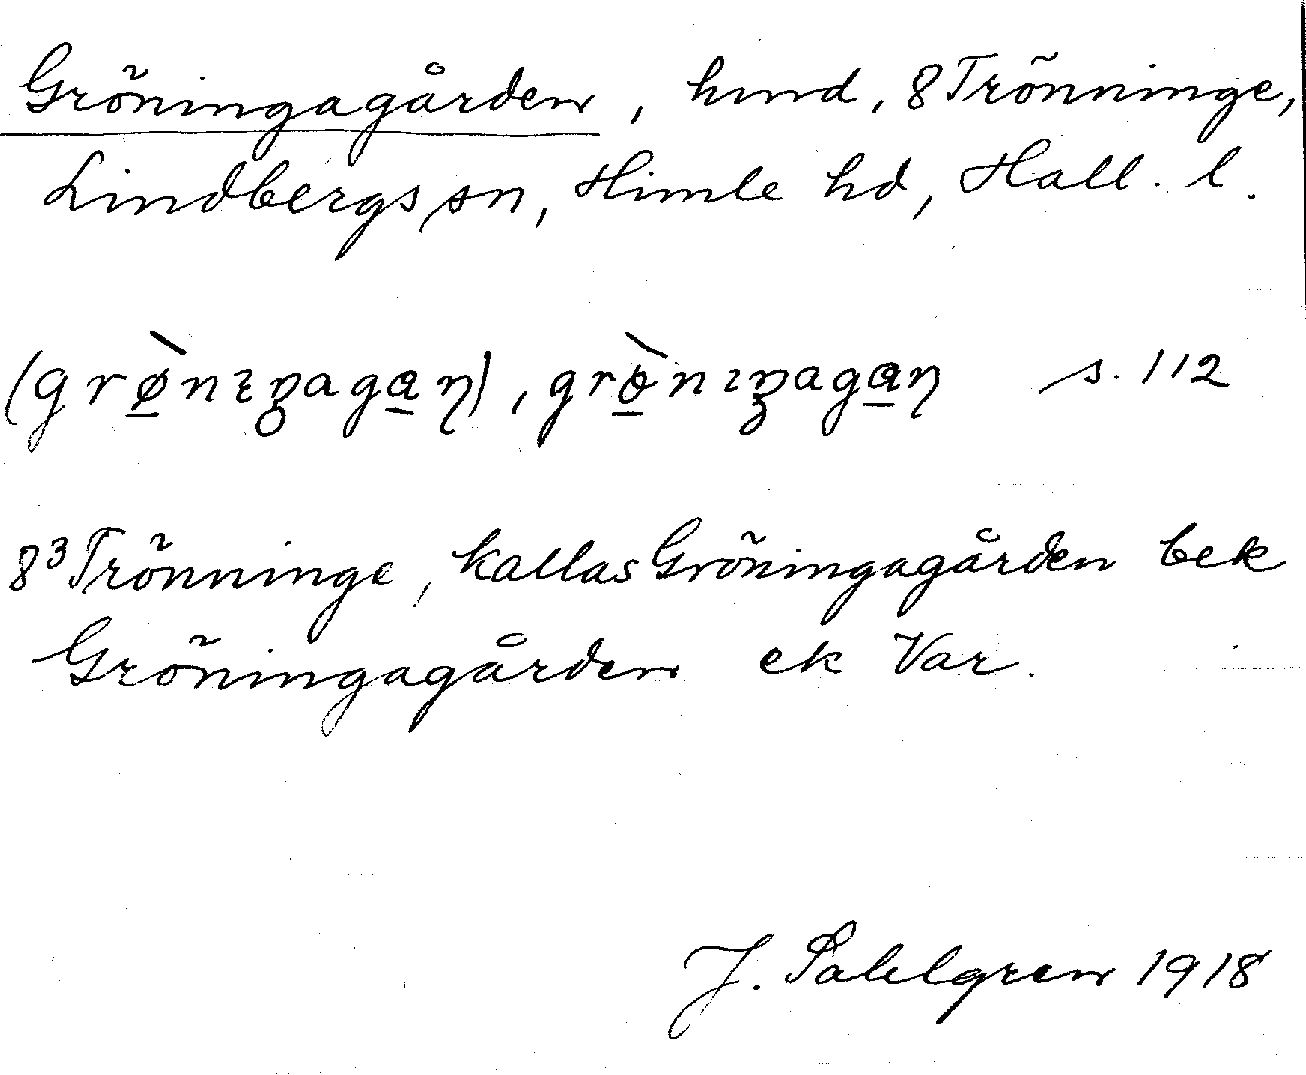 Gröningagården, hmd, 8 Trönninge,
Lindbergs sn, Himle hd, Hall. l.
(grø̀nıŋagaɳ), grò̱nıŋagaɳ s. 112
8³ Trönninge, kallas Gröningagården bek
Gröningagården ek Var.
J. Sahlgren 1918